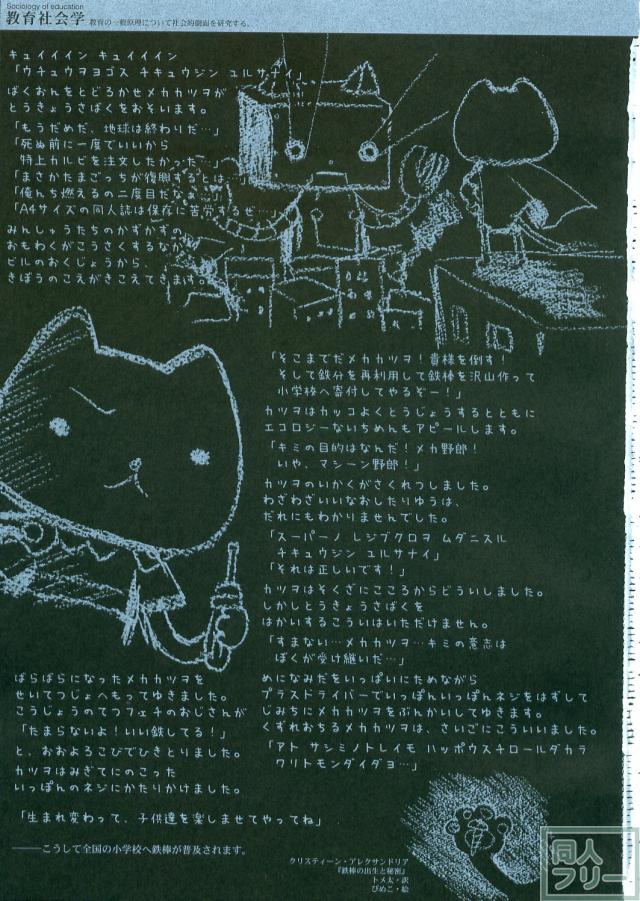 Sociology of education
教育社会学 教育の一般原理について社会的側面を研究する。
キュイイイン キュイイイン
「ウチュウヲヨゴス チキュウジン ユルサナイ」
ばくおんをとどろかせメカカツヲが
とうきょうさばくをおそいます。
「もうだめだ、地球は終わりだ…」
「死ぬ前に一度でいいから
特上カルビを注文したかった…」
「まさかたまごっちが復興するとは…」
「俺んち燃えるの二度目だなぁ…」
「A4サイズの同人誌は保存に苦労するぜ…」
みんしゅうたちのかずかずの
おもわくがこうさくするなか、
ビルのおくじょうから、
きぼうのこえがきこえてきます。
「そこまでだメカカツヲ！貴様を倒す！
そして鉄分を再利用して鉄棒を沢山作って
小学校へ寄付してやるぞー！」
カツヲはカッコよくとうじょうするとともに
エコロジーないちめんもアピールします。
「キミの目的はなんだ！メカ野郎！
いや、マシーン野郎！」
カツヲのいかくがさくれつしました。
わざわざいいなおしたりゆうは、
だれにもわかりませんでした。
「スーパーノ レジブクロヲ ムダニスル
チキュウジン ユルサナイ」
「それは正しいです！」
カツヲはそくざにこころからどういしました。
しかしとうきょうさばくを
はかいするこういはいただけません。
「すまない…メカカツヲ…キミの意志は
ぼくが受け継いだ…」
めになみだをいっぱいにためながら
プラスドライバーでいっぽんいっぽんネジをはずして
じみちにメカカツヲをぶんかいしてゆきます。
くずれおちるメカカツヲは、さいごにこういいました。
「アト サシミノトレイモ ハッポウスチロールダカラ
クリトモンダイダヨ…」
ばらばらになったメカカツヲを
せいてつじょへもってゆきました。
こうじょうのてつフェチのおじさんが
「たまらないよ！いい鉄してる！」
と、おおよろこびでひきとりました。
カツヲはみぎてにのこった
いっぽんのネジにかたりかけました。
「生まれ変わって、子供達を楽しませてやってね」
――こうして全国の小学校へ鉄棒が普及されます。
クリスティーン・アレクサンドリア
『鉄棒の出生と秘密』
トメ太・訳
ぴめこ・絵
同人
フリー